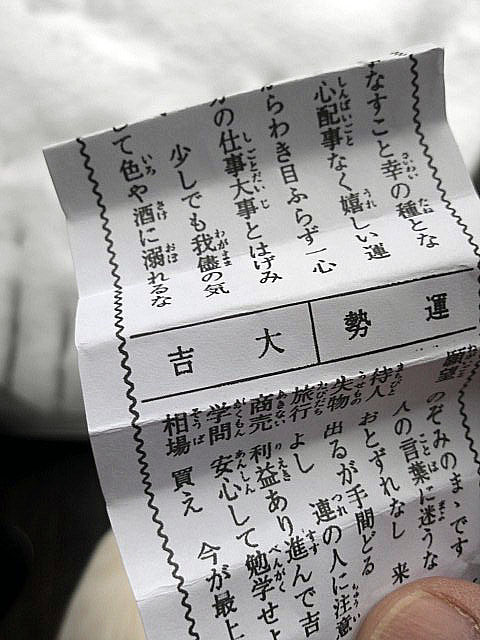 なすこと幸の種とな
心配事なく嬉しい運
らわき目ふらず一心
の仕事大事とはげみ
少しでも我儘の気
して色や酒に溺れるな
運勢
大吉
願望 のぞみのまゝです
人の言葉に迷うな
待人 おとずれなし 来
失物 出るが手間どる
旅行 よし 連の人に注意
商売 利益あり進んで吉
学問 安心して勉学せよ
相場 買え 今が最上